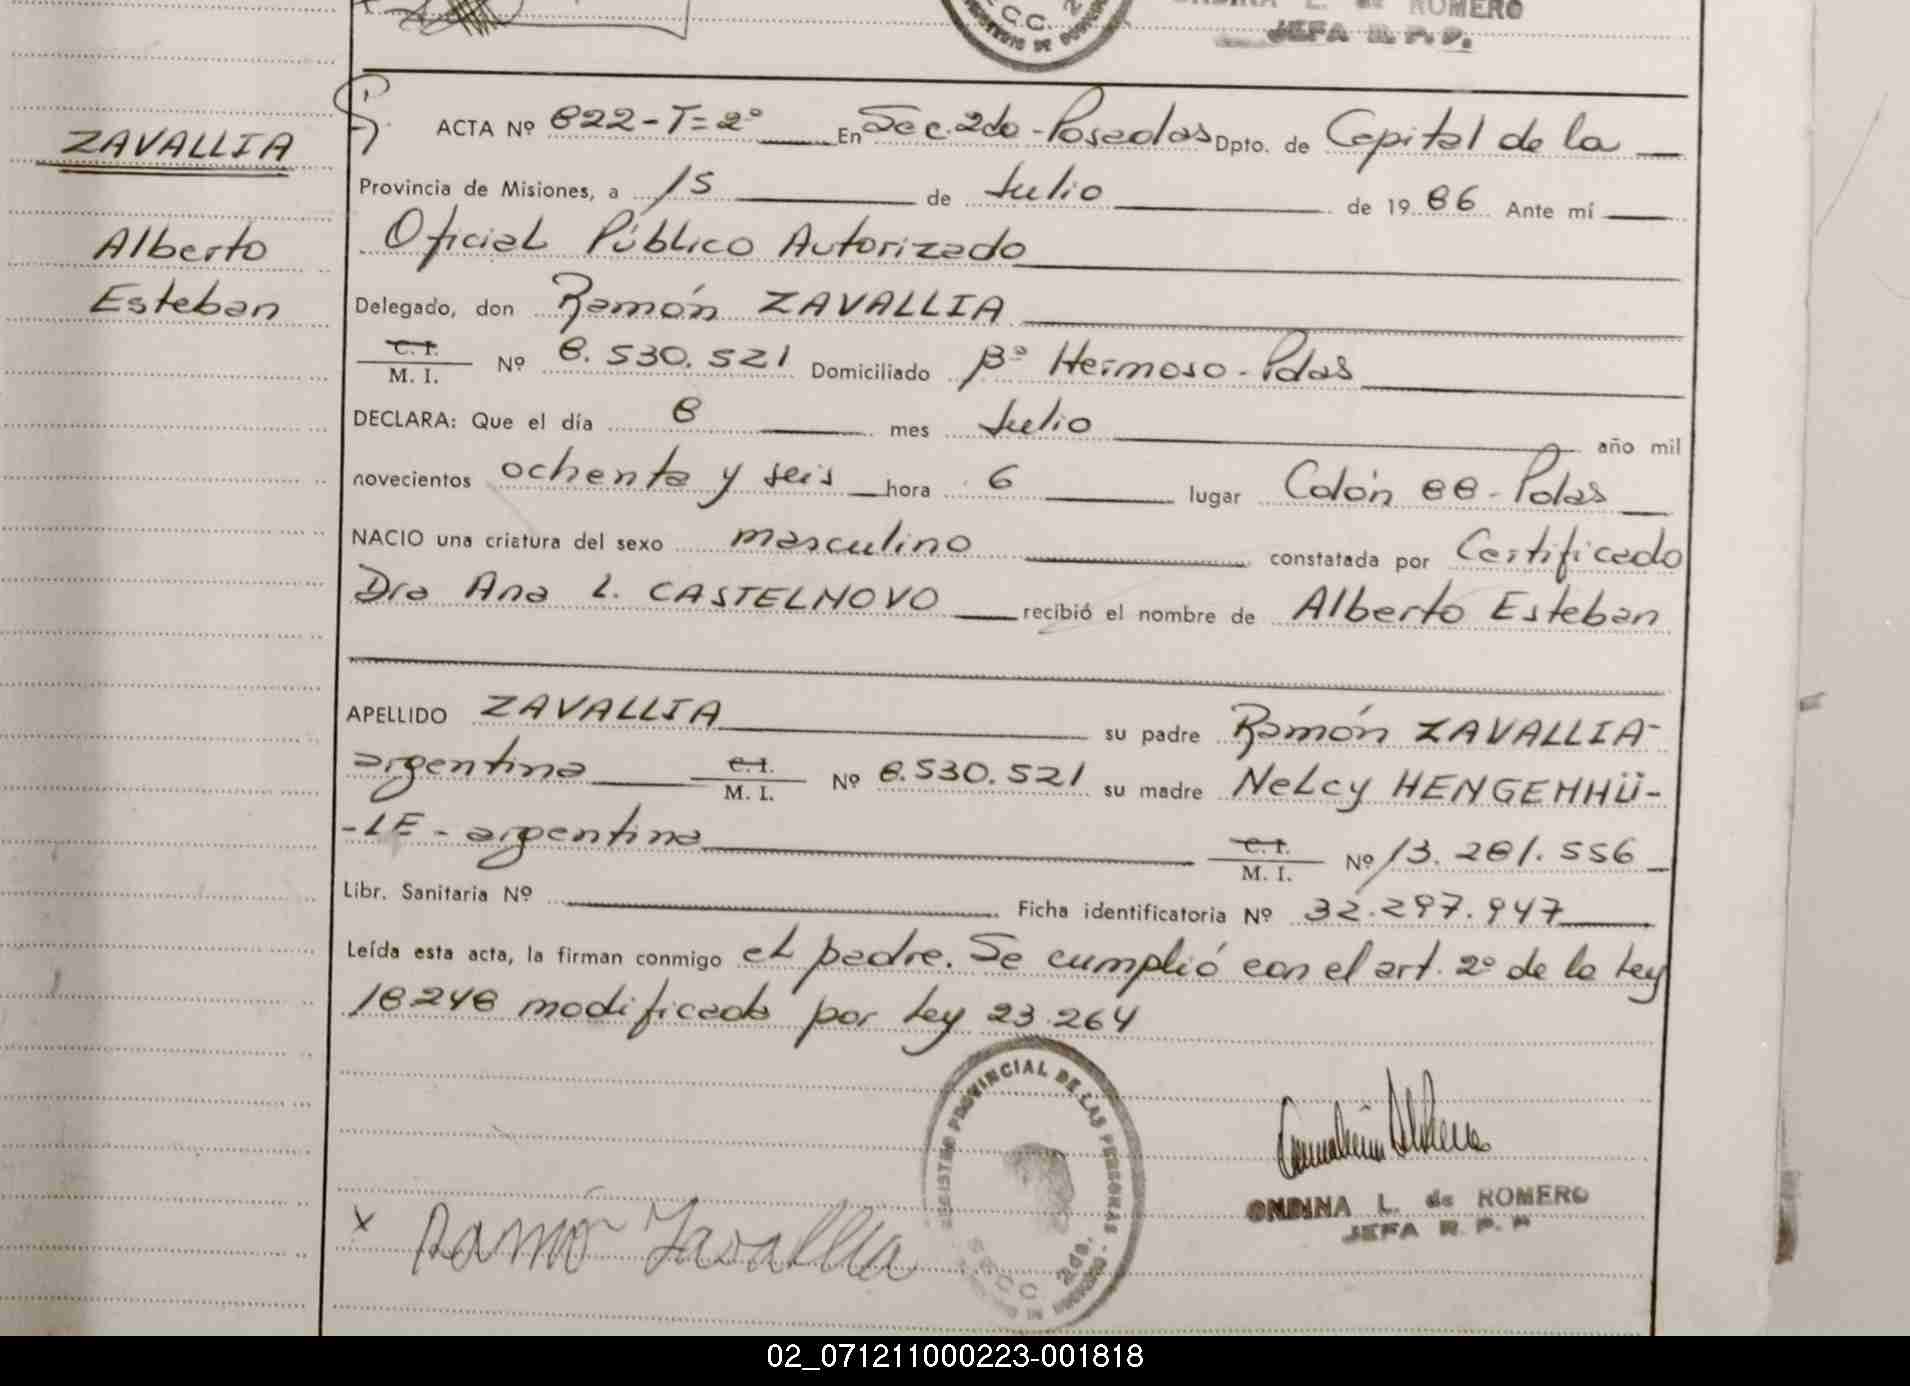 ONDINA L. de ROMERO
JEFA R. P. P.
ZAVALLIA
Alberto
Esteban
ACTA Nº 822-T=2º En Sec. 2do-Posadas Dpto. de Capital de la
Provincia de Misiones, a 15 de Julio de 1986 Ante mí
Oficial Público Autorizado
Delegado, don Ramón ZAVALLIA
C. I.
M. I. Nº 8.530.521 Domiciliado Bº Hermoso-Pdas
DECLARA: Que el día 8 mes Julio año mil
novecientos ochenta y seis hora 6 lugar Colón 88-Pdas
NACIO una criatura del sexo masculino constatada por Certificado
Dra Ana L. CASTELNOVO recibió el nombre de Alberto Esteban
APELLIDO ZAVALLIA su padre Ramón ZAVALLIA-
argentina C. I. M. I. Nº 8.530.521 su madre Nelcy HENGEMHÜ-
-LE-argentina C. I. M. I. Nº 13.281.556
Libr. Sanitaria Nº Ficha identificatoria Nº 32.297.947
Leída esta acta, la firman conmigo el padre. Se cumplió con el art. 2º de la Ley
18248 modificada por Ley 23.264
REGISTRO PROVINCIAL DE LAS PERSONAS
SECC 2da.
x Ramón Zavallia
ONDINA L. de ROMERO
JEFA R. P. P
02_071211000223-001818